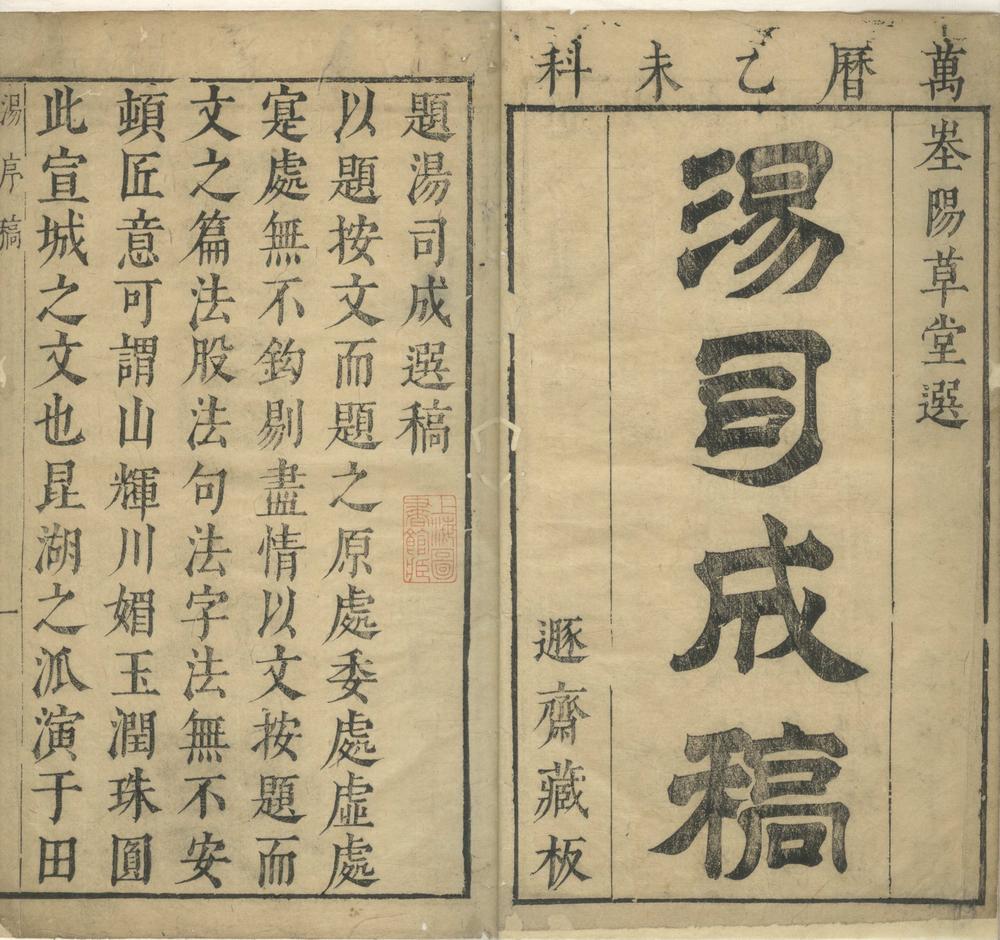 萬曆乙未科
峚陽草堂選
湯司成稿
遯齋藏板
題湯司成選稿
上海圖書館臧
以題按文而題之原處委處虛處
寔處無不鈎剔盡情以文按題而
文之篇法股法句法字法無不安
頓匠意可謂山輝川媚玉潤珠圓
此宣城之文也昆湖之派演于田
湯序稿 一